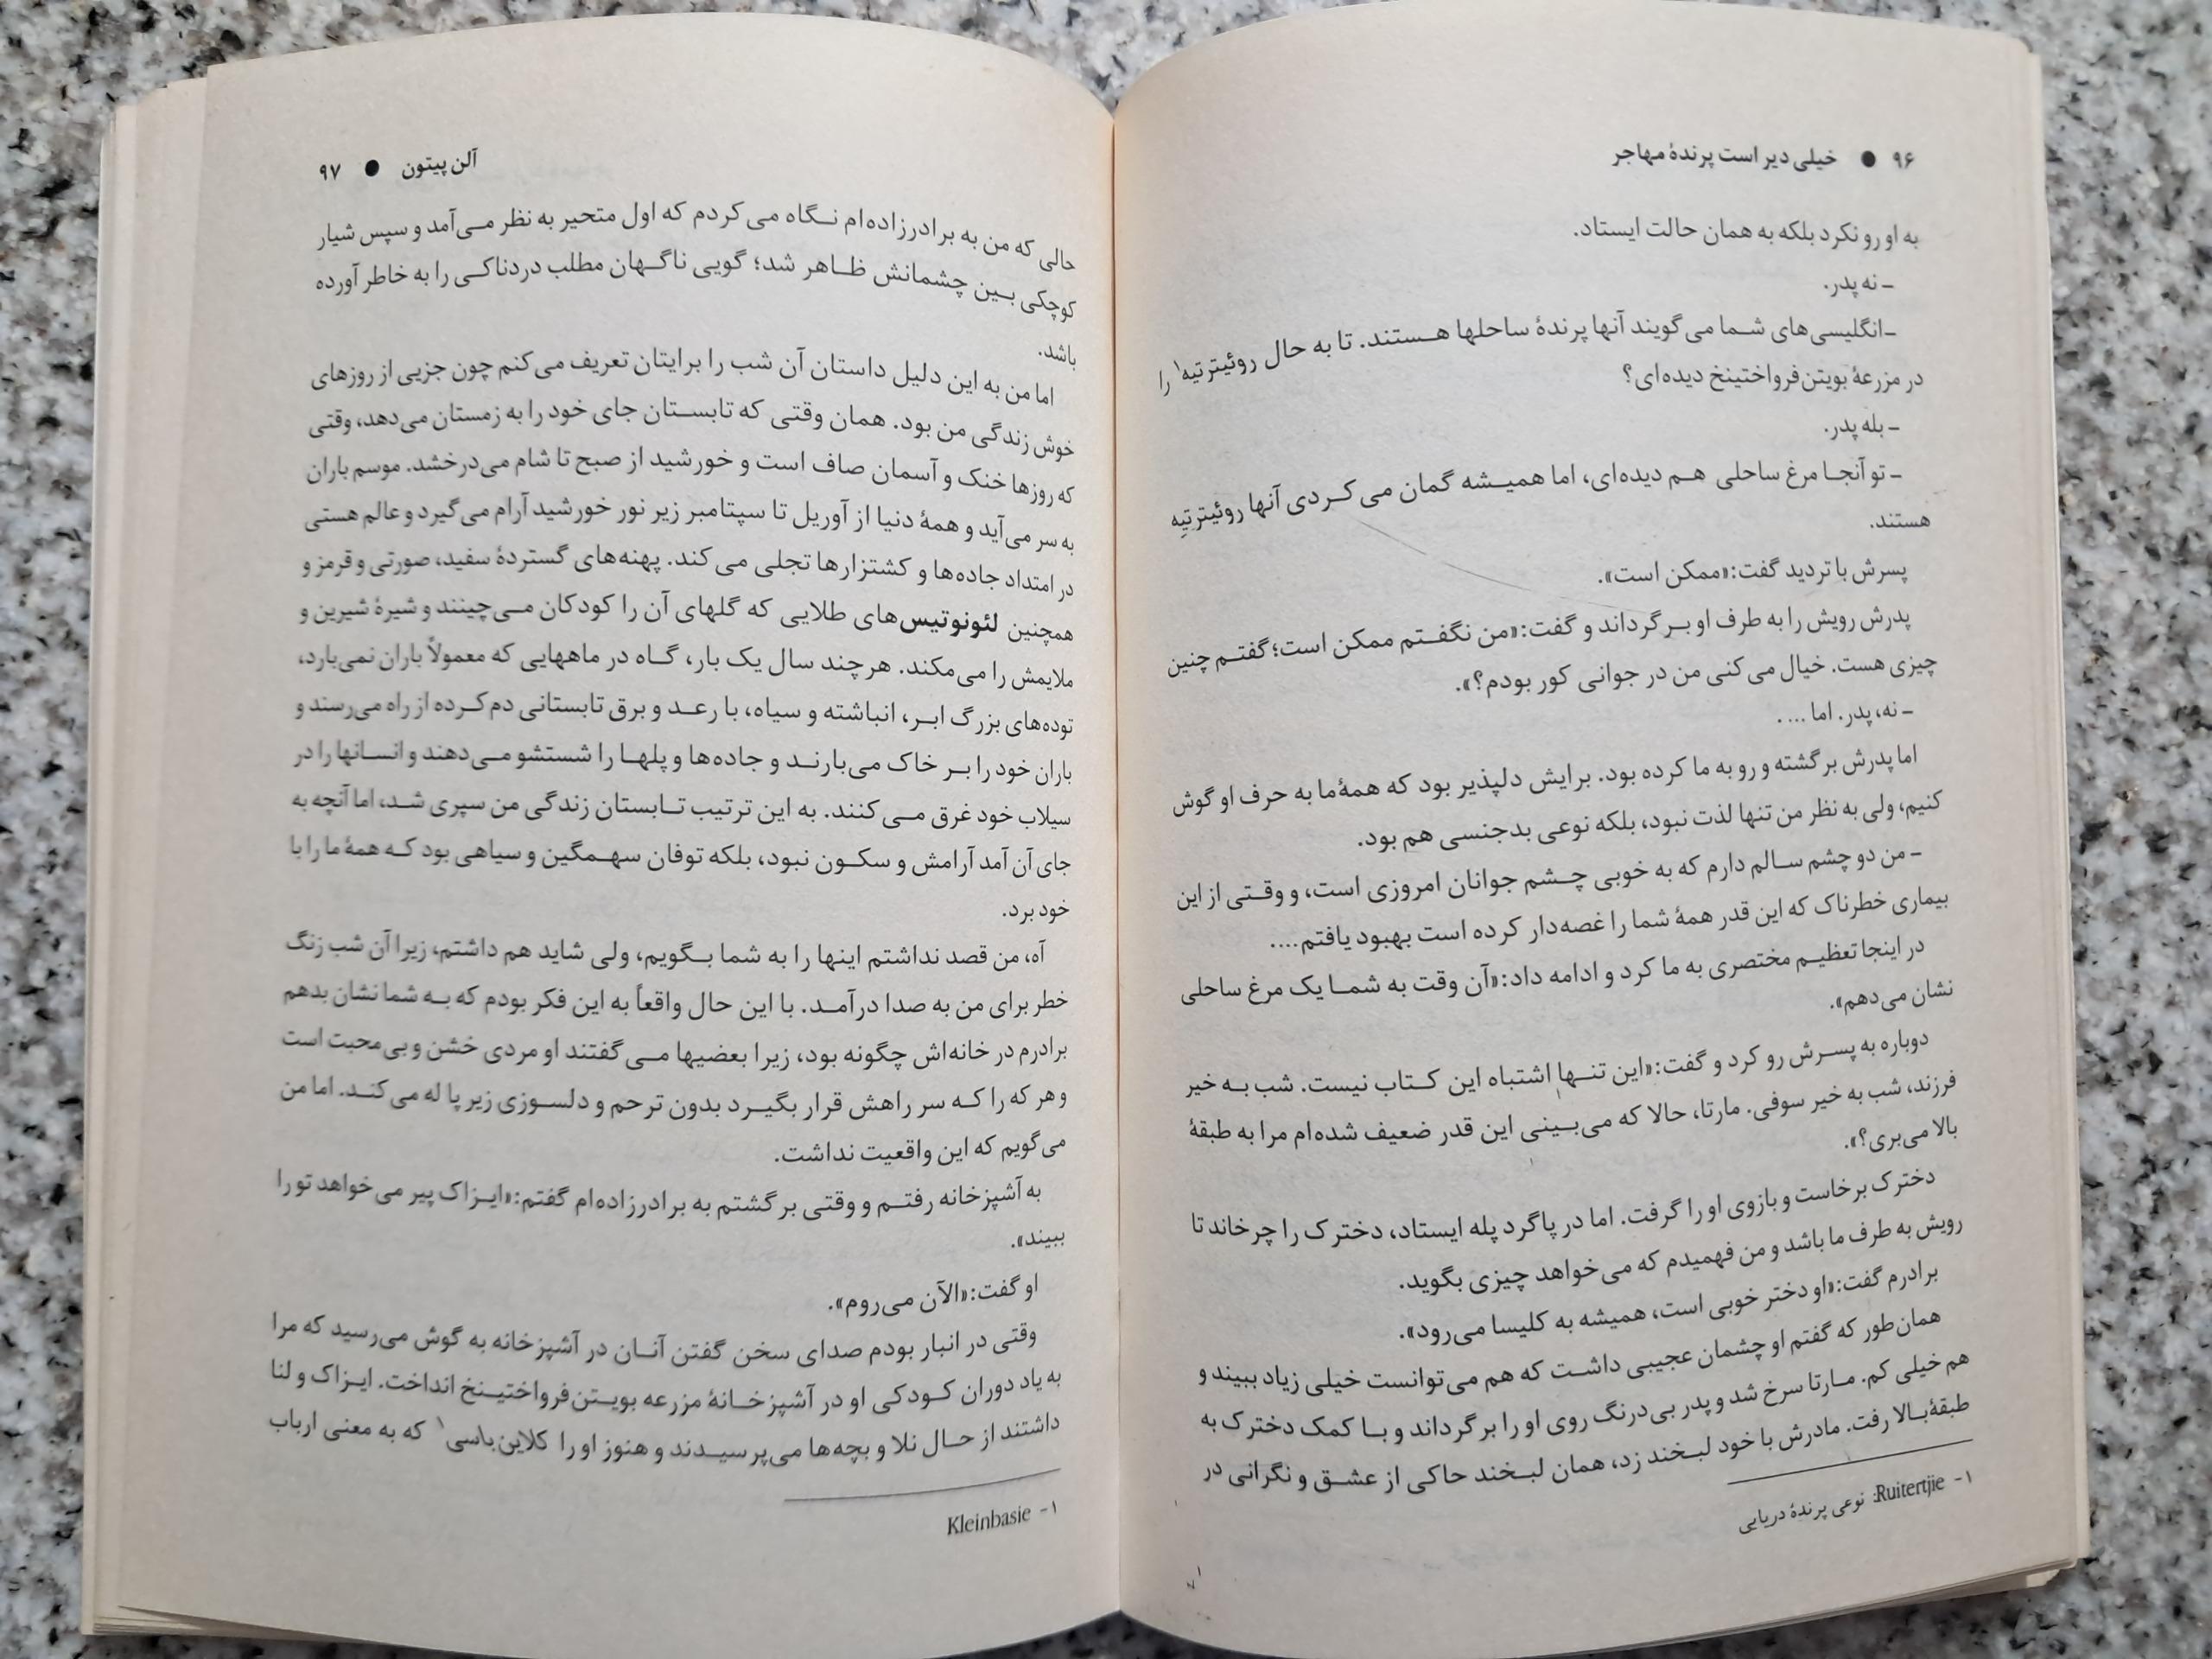 ۹۶ ● خیلی دیر است پرندهٔ مهاجر
به او رو نکرد بلکه به همان حالت ایستاد.
ـ نه پدر.
ـ انگلیسی‌های شما می‌گویند آنها پرندهٔ ساحلها هستند. تا به حال روئیترتیه۱ را
در مزرعهٔ بویتن‌فرواختینخ دیده‌ای؟
ـ بله پدر.
ـ تو آنجا مرغ ساحلی هم دیده‌ای، اما همیشه گمان می‌کردی آنها روئیترتیه
هستند.
پسرش با تردید گفت:«ممکن است».
پدرش رویش را به طرف او برگرداند و گفت:«من نگفتم ممکن است؛ گفتم چنین
چیزی هست. خیال می‌کنی من در جوانی کور بودم؟».
ـ نه، پدر. اما ... .
اما پدرش برگشته و رو به ما کرده بود. برایش دلپذیر بود که همهٔ‌ما به حرف او گوش
کنیم، ولی به نظر من تنها لذت نبود، بلکه نوعی بدجنسی هم بود.
ـ من دو چشم سالم دارم که به خوبی چشم جوانان امروزی است، و وقتی از این
بیماری خطرناک که این قدر همهٔ شما را غصه‌دار کرده است بهبود یافتم....
در اینجا تعظیم مختصری به ما کرد و ادامه داد:«آن وقت به شما یک مرغ ساحلی
نشان می‌دهم».
دوباره به پسرش رو کرد و گفت:«این تنها اشتباه این کتاب نیست. شب به خیر
فرزند، شب به خیر سوفی. مارتا، حالا که می‌بینی این قدر ضعیف شده‌ام مرا به طبقهٔ
بالا می‌بری؟».
دخترک برخاست و بازوی او را گرفت. اما در پاگرد پله ایستاد، دخترک را چرخاند تا
رویش به طرف ما باشد و من فهمیدم که می‌خواهد چیزی بگوید.
برادرم گفت:«او دختر خوبی است، همیشه به کلیسا می‌رود».
همان‌طور که گفتم او چشمان عجیبی داشت که هم می‌توانست خیلی زیاد ببیند و
هم خیلی کم. مارتا سرخ شد و پدر بی‌درنگ روی او را برگرداند و با کمک دخترک به
طبقهٔ‌بالا رفت. مادرش با خود لبخند زد، همان لبخند حاکی از عشق و نگرانی در
۱- Ruitertjie: نوعی پرندهٔ دریایی
آلن پیتون ● ۹۷
حالی که من به برادرزاده‌ام نگاه می‌کردم که اول متحیر به نظر می‌آمد و سپس شیار
کوچکی بین چشمانش ظاهر شد؛ گویی ناگهان مطلب دردناکی را به خاطر آورده
باشد.
اما من به این دلیل داستان آن شب را برایتان تعریف می‌کنم چون جزیی از روزهای
خوش زندگی من بود. همان وقتی که تابستان جای خود را به زمستان می‌دهد، وقتی
که روزها خنک و آسمان صاف است و خورشید از صبح تا شام می‌درخشد. موسم باران
به سر می‌آید و همهٔ دنیا از آوریل تا سپتامبر زیر نور خورشید آرام می‌گیرد و عالم هستی
در امتداد جاده‌ها و کشتزارها تجلی می‌کند. پهنه‌های گستردهٔ سفید، صورتی و قرمز و
همچنین لئونوتیس‌های طلایی که گلهای آن را کودکان می‌چینند و شیرهٔ شیرین و
ملایمش را می‌مکند. هر چند سال یک بار، گاه در ماههایی که معمولاً باران نمی‌بارد،
توده‌های بزرگ ابر، انباشته و سیاه، با رعد و برق تابستانی دم‌کرده از راه می‌رسند و
باران خود را بر خاک می‌بارند و جاده‌ها و پلها را شستشو می‌دهند و انسانها را در
سیلاب خود غرق می‌کنند. به این ترتیب تابستان زندگی من سپری شد، اما آنچه به
جای آن آمد آرامش و سکون نبود، بلکه توفان سهمگین و سیاهی بود که همهٔ ما را با
خود برد.
آه، من قصد نداشتم اینها را به شما بگویم، ولی شاید هم داشتم، زیرا آن شب زنگ
خطر برای من به صدا درآمد. با این حال واقعاً به این فکر بودم که به شما نشان بدهم
برادرم در خانه‌اش چگونه بود، زیرا بعضیها می‌گفتند او مردی خشن و بی‌محبت است
و هر که را که سر راهش قرار بگیرد بدون ترحم و دلسوزی زیر پا له می‌کند. اما من
می‌گویم که این واقعیت نداشت.
به آشپزخانه رفتم و وقتی برگشتم به برادرزاده‌ام گفتم:«ایزاک پیر می‌خواهد تو را
ببیند».
او گفت:«الآن می‌روم».
وقتی در انبار بودم صدای سخن گفتن آنان در آشپزخانه به گوش می‌رسید که مرا
به یاد دوران کودکی او در آشپزخانهٔ مزرعه بویتن‌فرواختینخ انداخت. ایزاک و لنا
داشتند از حال نلا و بچه‌ها می‌پرسیدند و هنوز او را کلاین‌باسی۱ که به معنی ارباب
۱- Kleinbasie